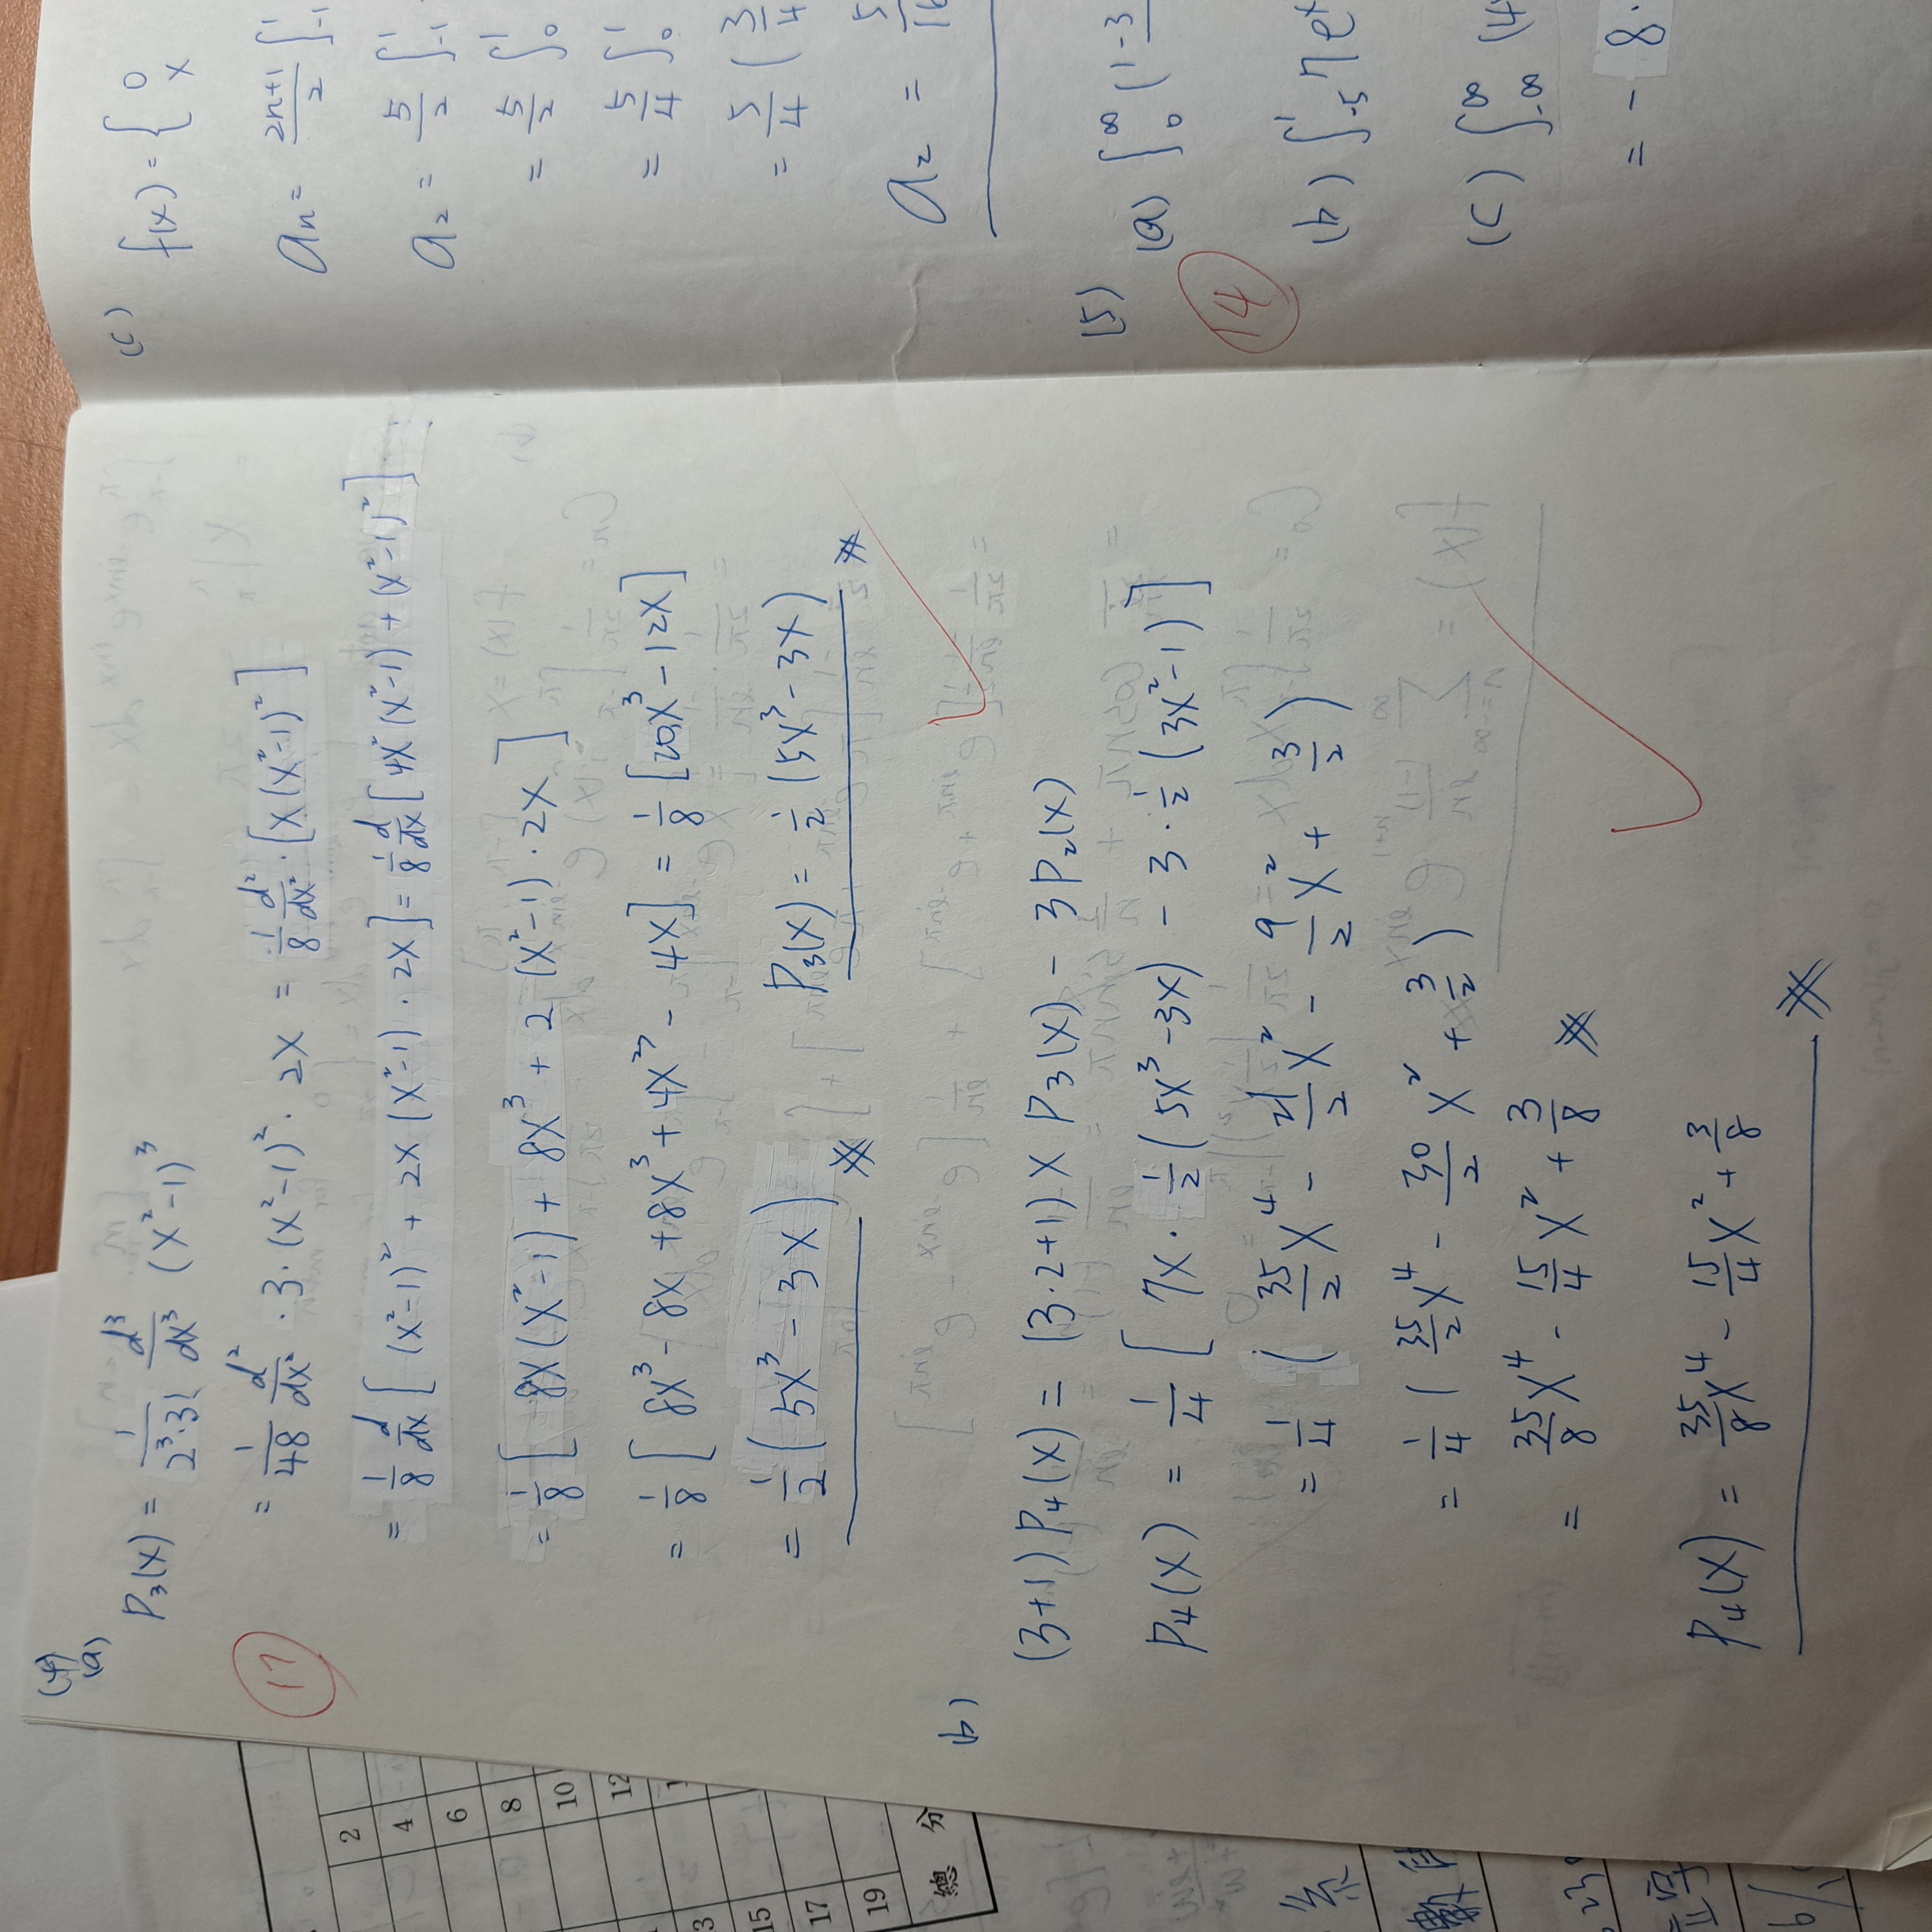 (4)
(a)
P₃(x) = 1/(2³·3!) d³/dx³ (x²-1)³
17
= 1/48 d²/dx² · 3·(x²-1)² · 2x = 1/8 d²/dx² · [x(x²-1)²]
= 1/8 d/dx [(x²-1)² + 2x(x²-1)·2x] = 1/8 d/dx [4x²(x²-1) + (x²-1)²]
= 1/8 [8x(x²-1) + 8x³ + 2(x²-1)·2x]
= 1/8 [8x³ - 8x + 8x³ + 4x³ - 4x] = 1/8 [20x³ - 12x]
= 1/2 (5x³ - 3x) P₃(x) = 1/2 (5x³ - 3x)
b)
(3+1) P₄(x) = (3·2+1) x P₃(x) - 3P₂(x)
P₄(x) = 1/4 [7x · 1/2 (5x³-3x) - 3 · 1/2 (3x²-1)]
= 1/4 (35/2 x⁴ - 21/2 x² - 9/2 x² + 3/2)
= 1/4 (35/2 x⁴ - 30/2 x² + 3/2)
= 35/8 x⁴ - 15/4 x² + 3/8
P₄(x) = 35/8 x⁴ - 15/4 x² + 3/8
(c)
f(x) = { 0
x
aₙ = (2n+1)/2 ∫₋₁¹
a₂ = 5/2 ∫₋₁¹
= 5/2 ∫₀¹
= 5/4 ∫₀¹
= 5/4 ( 3/4
a₂ =
(5)
14
(a) ∫₀^∞
(b)
(c)
= - 8
2
4
6
8
10
12
15
17
19
總分